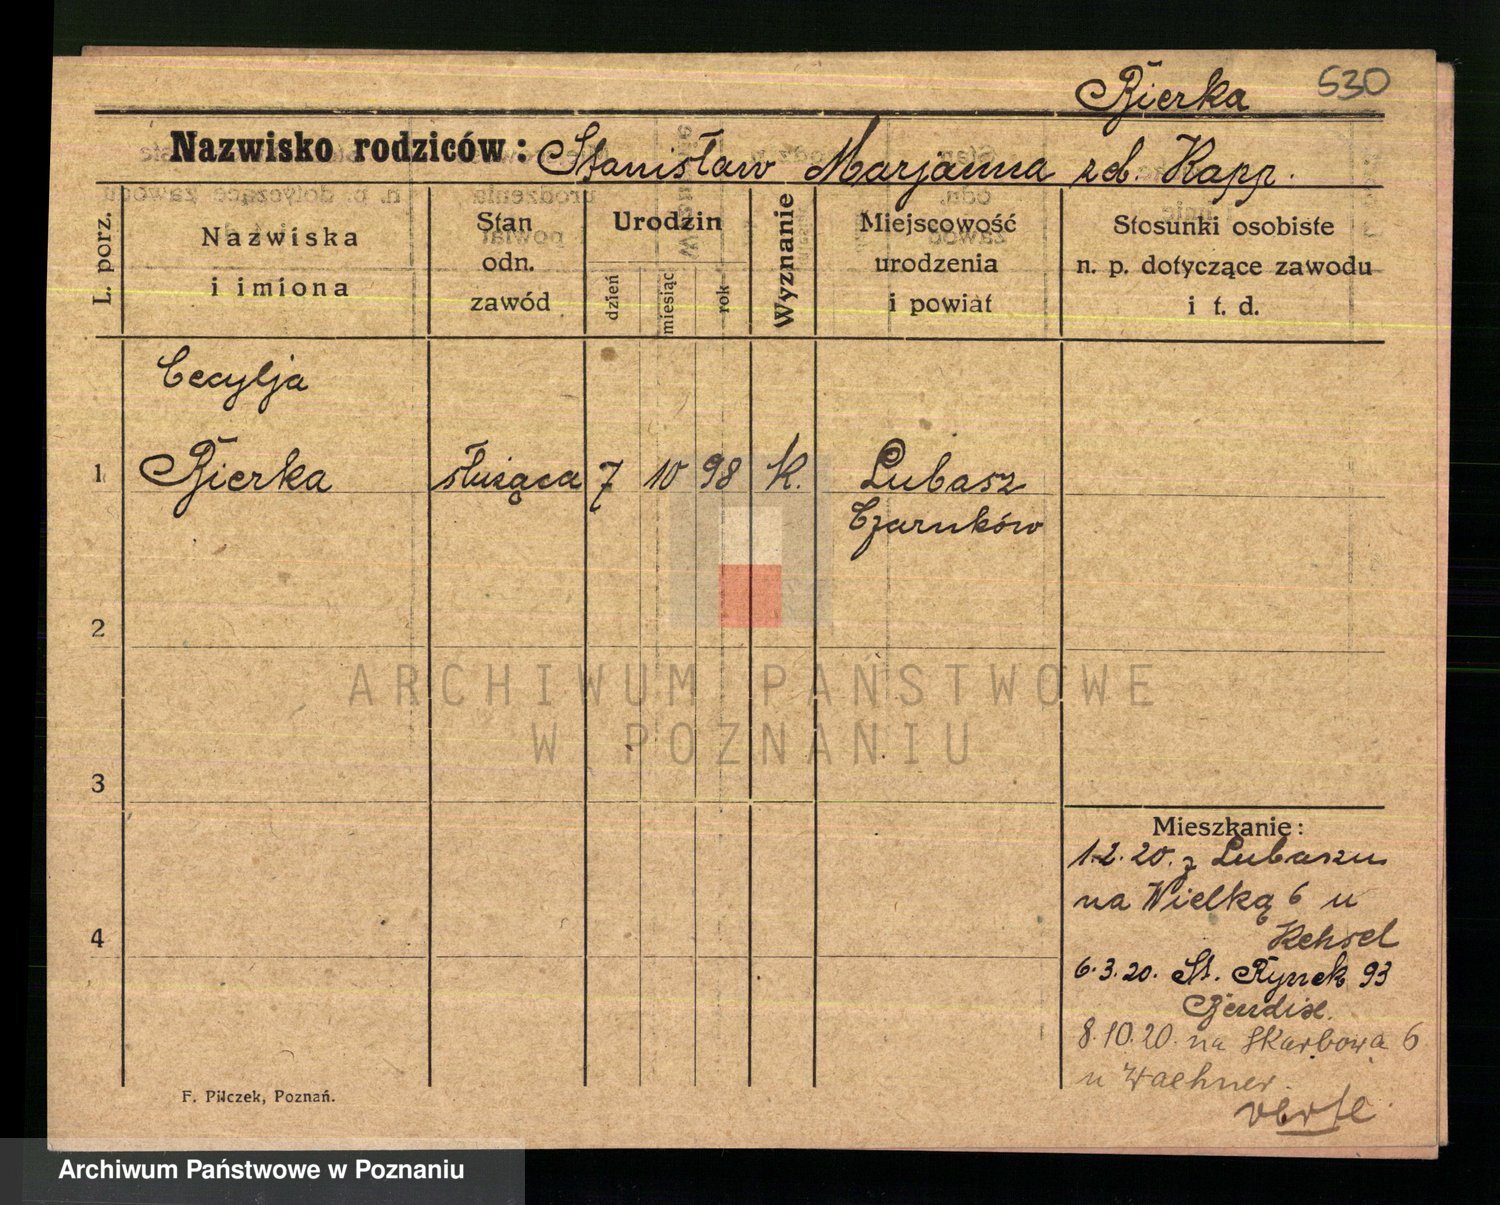 Bierka 530
Nazwisko rodziców: Stanisław Marjanna zd. Kapp.
L. porz.
Nazwiska
i imiona
Stan
odn.
zawód
Urodzin
dzień
miesiąc
rok
Wyznanie
Miejscowość
urodzenia
i powiat
Stosunki osobiste
n. p. dotyczące zawodu
i t. d.
Cecylja
1 Bierka służąca 7 10 98 K. Lubasz
Czarnków
2
3
Mieszkanie:
1.2.20. z Lubaszu
na Wielką 6 u
4
Kehsel
6.3.20. St. Rynek 93
Bendix.
8.10.20. na Skarbowa 6
u Waehner.
verte
F. Pilczek, Poznań.
ARCHIWUM PAŃSTWOWE
W POZNANIU
Archiwum Państwowe w Poznaniu